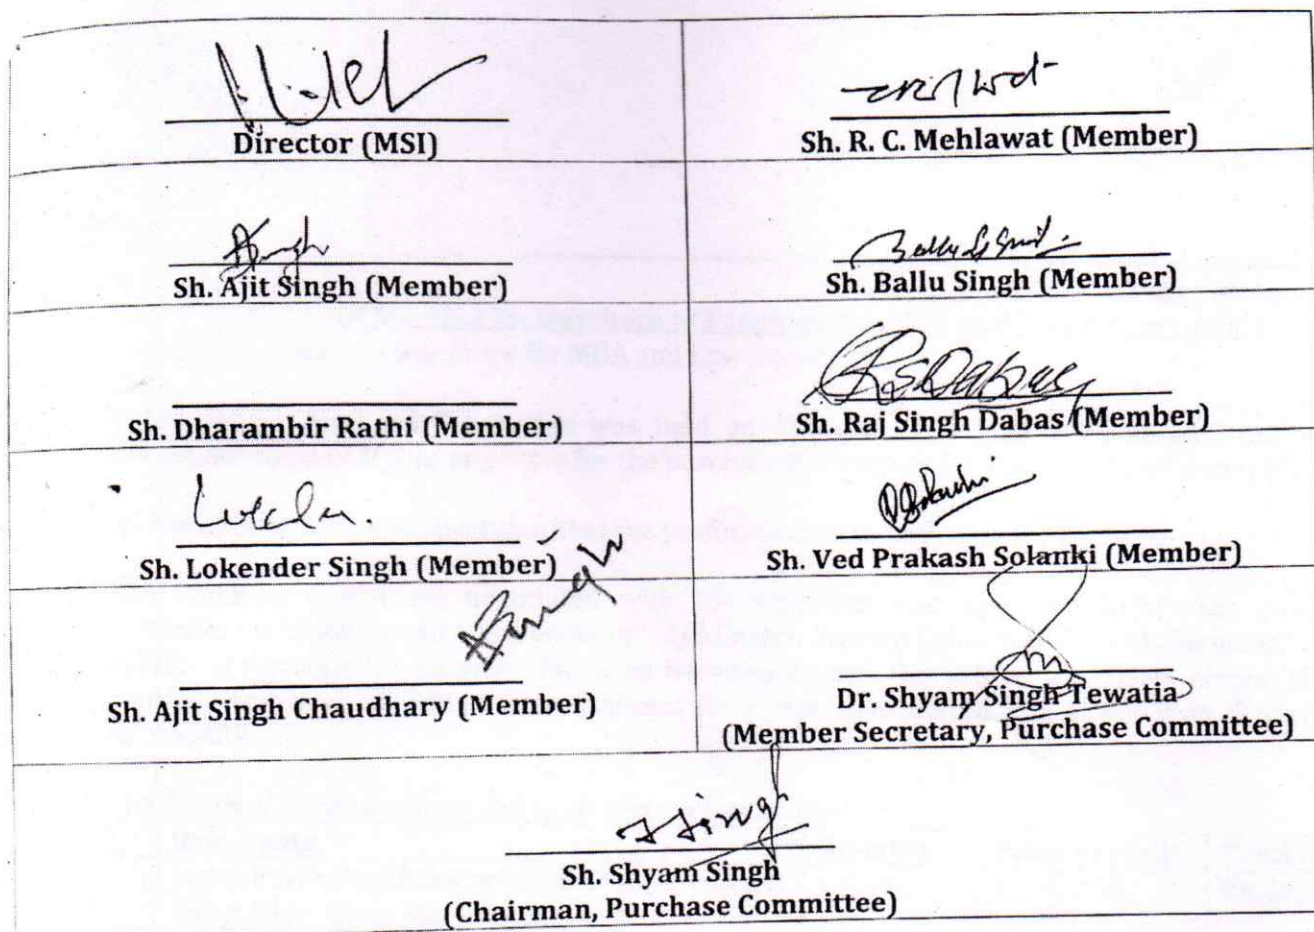 Director (MSI)
Sh. R. C. Mehlawat (Member)
Sh. Ajit Singh (Member)
Ballu Singh
Sh. Ballu Singh (Member)
Sh. Dharambir Rathi (Member)
RSDabas
Sh. Raj Singh Dabas (Member)
Sh. Lokender Singh (Member)
Sh. Ved Prakash Solanki (Member)
Sh. Ajit Singh Chaudhary (Member)
Dr. Shyam Singh Tewatia
(Member Secretary, Purchase Committee)
Singh
Sh. Shyam Singh
(Chairman, Purchase Committee)